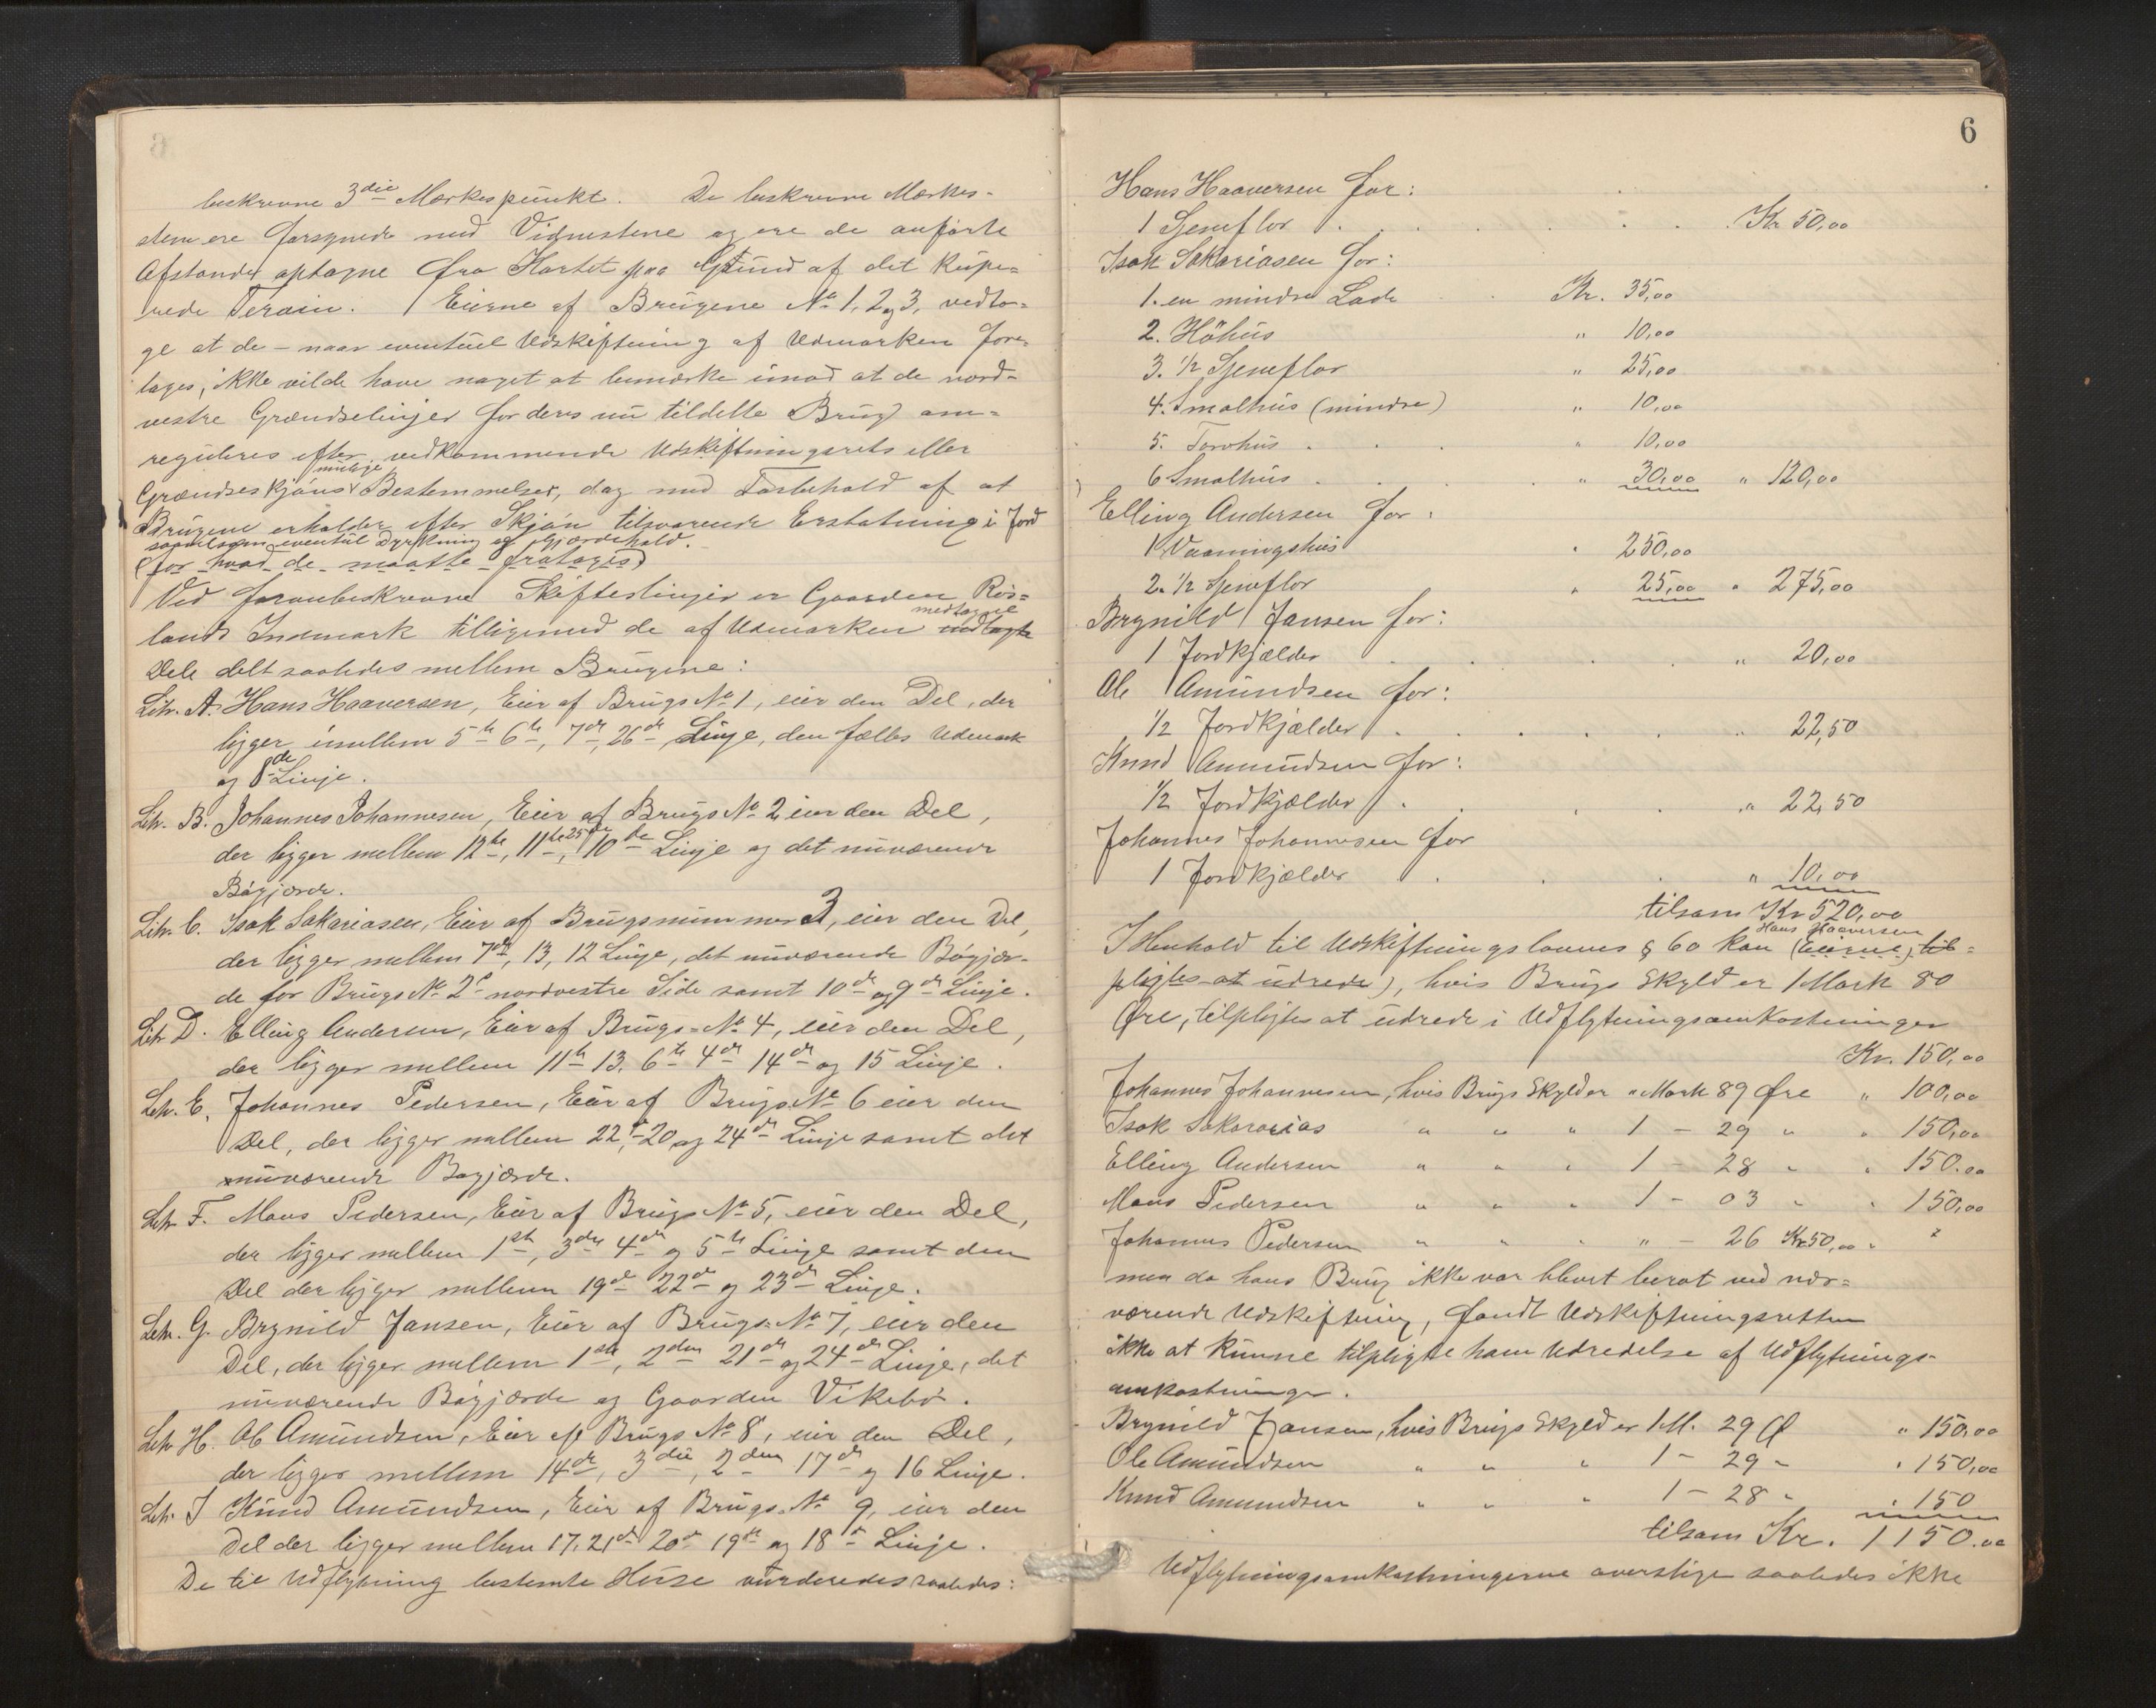 beskrevne 3die Mærkespunkt. De beskrevne Mærkes-
stene ere forsynede med Vidnestene og ere de anførte
Afstande optagne fra Kartet paa Grund af det kupe-
rede Terain. Eierne af Brugene No 1, 2 og 3, vedto-
ge at de - naar eventuel Udskiftning af Udmarken fore-
tages, ikke vilde have noget at bemærke imod at de nord-
vestre Grændselinjer for deres nu tildelte Brug om-
reguleres efter vedkommende Udskiftningsrets eller
mulige
Grændseskjøns Bestemmelser, dog med Forbehold af at
Brugene erholder efter Skjøn tilsvarende Erstatning i Jord
saavelsom eventuel Dyrkning og Gjærdehold.
(for hvad de maatte fratages)
Ved foranbeskrevne Skifteslinjer er Gaarden Røs-
medtagne
lands Indmark tilligemed de af Udmarken indtagte
Dele delt saaledes mellem Brugene:
Litr. A. Hans Haaversen, Eier af Brugs No 1, eier den Del, der
ligger imellem 5te 6te, 7de, 26de Linje, den fælles Udmark
og 8de Linje.
Litr. B. Johannes Johannesen, Eier af Brugs No 2 eier den Del,
der ligger mellem 12te, 11te, 25de, 10de Linje og det nuværende
Bøgjærde.
Litr. C. Isak Sakariasen, Eier af Brugsnummer 3, eier den Del,
der ligger mellem 7de, 13, 12 Linje, det nuværende Bøgjær-
de for Brugs No 2s nordvestre Side samt 10de og 9de Linje.
Litr D. Elling Andersen, Eier af Brugs-No 4, eier den Del,
der ligger mellem 11te 13. 6te 4de 14de og 15 Linje.
Litr. E. Johannes Pedersen, Eier af Brugs No 6 eier den
Del, der ligger mellem 22de, 20 og 24de Linje samt det
nuværende Bøgjærde.
Litr F. Mons Pedersen, Eier af Brugs No 5, eier den Del,
der ligger mellem 1ste, 3die 4de og 5te Linje samt den
Del der ligger mellem 19de 22de og 23de Linje.
Litr. G. Brynild Jansen, Eier af Brugs No 7, eier den
Del, der ligger mellem 1ste, 2den 21de og 24de Linje, det
nuværende Bøgjærde og Gaarden Vikebø.
Litr H. Ole Amundsen, Eier af Brugs No 8, eier den Del,
der ligger mellem 14de, 3die, 2den 17de og 16 Linje.
Litr. I Knud Amundsen, Eier af Brugs No 9, eier den
Del der ligger mellem 17. 21de 20de 19de og 18de Linje.
De til Udflytning bestemte Huse vurderedes saaledes:
6
Hans Haaversen for:
1 Gjeneflor . . . . Kr 50,00
Isak Sakariasen for:
1. en mindre Lade Kr. 35,00
2. Höhus " 10,00
3. 1/2 Gjeneflor " 25,00
4. Smalhus (mindre) " 10,00
5. Torvhus . . " 10,00
6 Smalhus . . . " 30,00 " 120,00
Elling Andersen for:
1 Vaaningshus " 250,00
2. 1/2 Gjeneflor " 25,00 " 275,00
Brynild Jansen for:
1 Jordkjælder . . . " 20,00
Ole Amundsen for:
1/2 Jordkjælder . . . " 22,50
Knud Amundsen for:
1/2 Jordkjælder . . . " 22,50
Johannes Johannesen for
1 Jordkjælder . . " 10,00
tilsam Kr 520,00
Hans Haaversen
I Henhold til Udskiftningslovens § 60 kan (Eierne) til-
pligtes at udrede), hvis Brugs Skyld er 1 Mark 80
Øre, tilpligtes at udrede i Udflytningsomkostninger
Kr. 150,00
Johannes Johannesen, hvis Brugs Skyld er " Mark 89 Øre " 100,00
Isak Sakararias " " " 1 - 29 " " 150,00
Elling Andersen " " " 1 - 28 " " 150.00
Mons Pedersen " " " 1 - 03 " " 150,00
Johannes Pedersen " " " " - 26 Kr 50,00 " "
men da hans Brug ikke var blevet berørt ved nær-
værende Udskiftning, fandt Udskiftningsretten
ikke at kunne tilpligte ham Udredelse af Udflytnings-
omkostninger.
Brynild Jansen, hvis Brugs Skyld er 1 M. 29 Ø " 150,00
Ole Amundsen " " " 1 - 29 - " 150,00
Knud Amundsen " " " 1 - 28 " " 150
tilsam Kr. 1150.00
Udflytningsomkostningerne overstige saaledes ikke